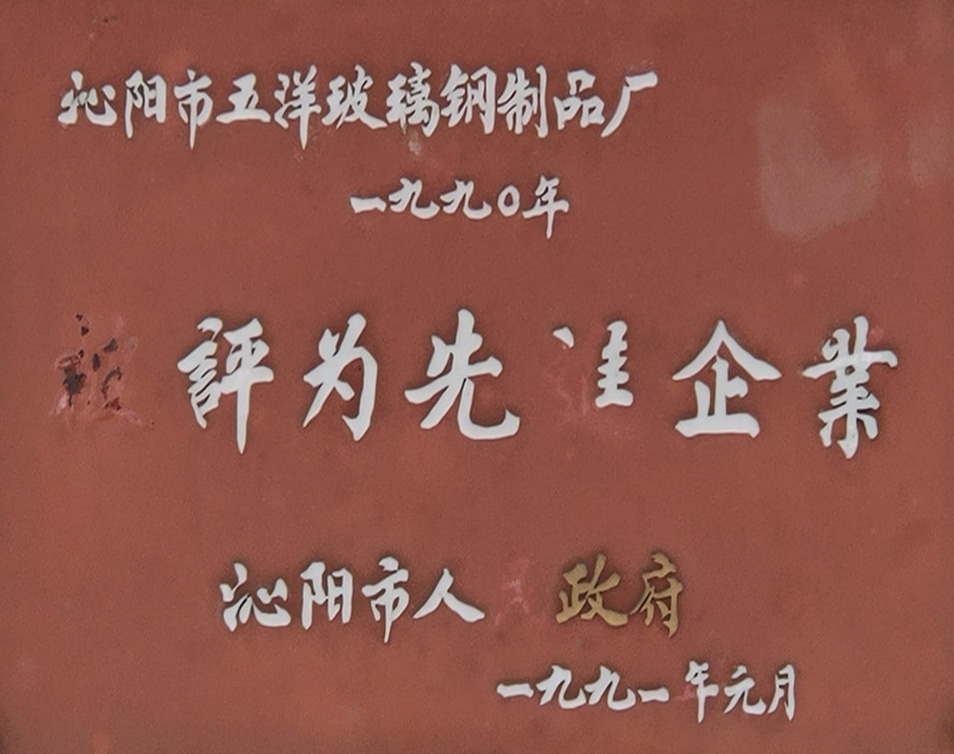 沁阳市五洋玻璃钢制品厂
一九九〇年
被評为先進企業
沁阳市人民政府
一九九一年元月